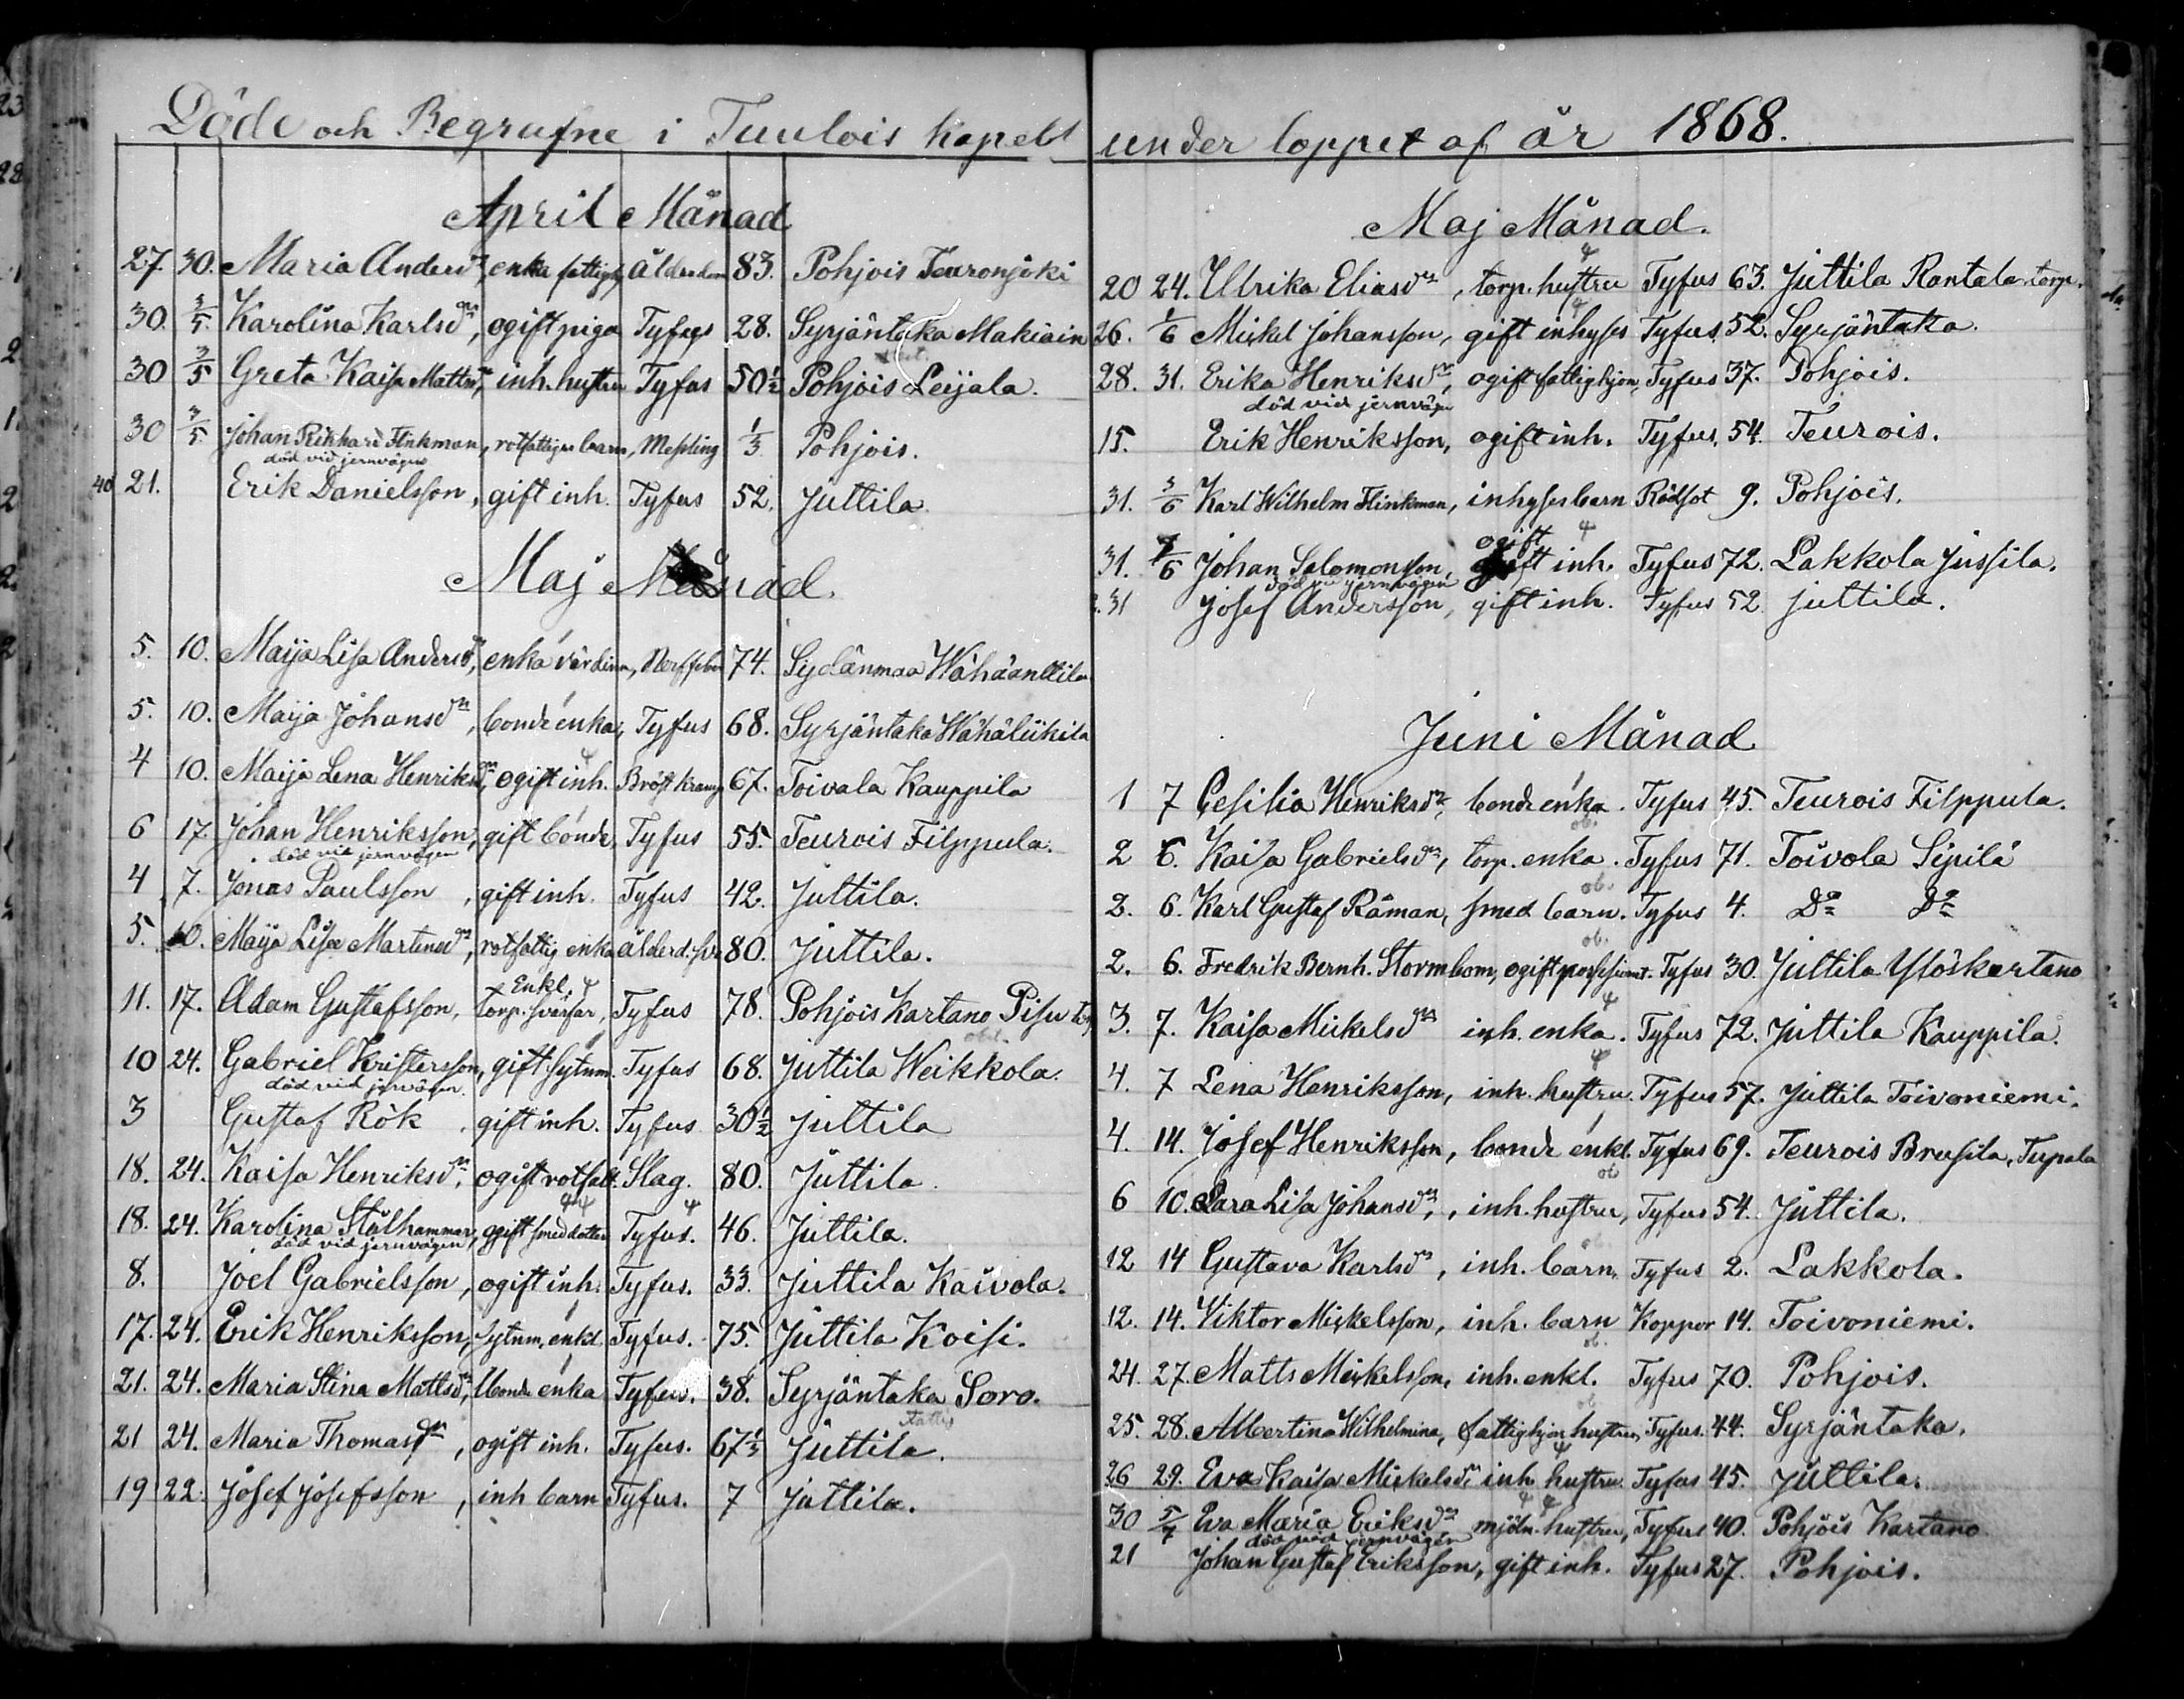 Döde och Begrafne i Tuulois kapell
April Månad
27. 30. Maria Andersdr, enka fattighj, ålderdom 83. Pohjois Teuronjoki
30. 3/5. Karolina Karlsdr, ogift piga Tyfus 28. Syrjäntaka Makiain
30 3/5 Greta Kaisa Mattsdr, inh. hustru Tyfus 50 1/2 Pohjois Leijala.
30 3/5. Johan Rikhard Flinkman, rotfattiges barn, Messling 1/3 Pohjois.
död vid jernvägen
40 21. Erik Danielsson, gift inh. Tyfus 52. Juttila
Maj Månad.
5. 10. Maija Lisa Andersdr, enka värdinn, Nerffeber 74. Sydänmaa Wähäanttila
5. 10. Maija Johansdr, bonde enka, Tyfus 68. Syrjäntaka Wähäliikila
4 10. Maija Lena Henriksdr, ogift inh. Bröst kramp 67. Toivala Kauppila
6 17. Johan Henriksson, gift bonde, Tyfus 55. Teurois Filppula.
död vid jernvägen
4 7. Jonas Paulsson, gift inh. Tyfus 42. Juttila.
5. 10. Maija Lisa Martensdr, rotfattig enka ålderd. 80. Juttila.
Enkl.
11. 17. Adam Gustafsson, torp. svärfar, Tyfus 78. Pohjois Kartano Pisu
10 24. Gabriel Kristersson, gift sytnm. Tyfus 68. Juttila Weikkola.
död vid jernvägen.
3 Gustaf Rök, gift inh. Tyfus 30 1/2 Juttila
18. 24. Kaisa Henriksdr, ogift rotfatt. Slag. 80. Juttila.
18. 24. Karolina Stålhammar, ogift smed dotter Tyfus. 46. Juttila.
död vid jernvägen
8. Joel Gabrielsson, ogift inh. Tyfus. 33. Juttila Kaivola.
17. 24. Erik Henriksson, sytnm. enkl. Tyfus. 75. Juttila Koisi.
21. 24. Maria Stina Mattsdr, bonde enka Tyfus. 38. Syrjäntaka Soro.
21 24. Maria Thomasdr, ogift inh. Tyfus. 67 1/2 Juttila.
19 22. Josef Josefsson, inh barn Tyfus. 7 Juttila.
under loppet af år 1868.
Maj Månad.
20 24. Ulrika Eliasdr, torp. hustru Tyfus 63. Juttila Rantala torp.
26. 1/6 Mickel Johansson, gift inhyses Tyfus 52. Syrjäntaka.
28. 31. Erika Henriksdr, ogift fattighjon, Tyfus 37. Pohjois.
död vid jernvägen
15. Erik Henriksson, ogift inh. Tyfus. 54. Teurois.
31. 3/6 Karl Wilhelm Flinkman, inhyses barn Rödsot 9. Pohjois.
ogift
31. 7/6 Johan Salomonsson, inh. Tyfus 72. Lakkola Jussila.
död vid jernvägen
31 Josef Andersson, gift inh. Tyfus 52. Juttila.
Juni Månad
1 7 Cesilia Henriksdr, bonde enka. Tyfus 45. Teurois Filppula.
2 6. Kaisa Gabrielsdr, torp. enka. Tyfus 71. Toivola Sipilä
2. 6. Karl Gustaf Råman, smed barn. Tyfus 4. Do Do
2. 6. Fredrik Bernh. Stormbom, ogift possessionat. Tyfus 30. Juttila Ylöskartano
3. 7. Kaisa Mickelsdr inh. enka. Tyfus 72. Juttila Kauppila.
4. 7 Lena Henriksson, inh. hustru. Tyfus 57. Juttila Toivoniemi.
4. 14. Josef Henriksson, bonde enkl. Tyfus 69. Teurois Brusila, Tupala
6 10. Sara Lisa Johansdr, inh. hustru, Tyfus 54. Juttila.
12 14 Gustava Karlsdr, inh. barn. Tyfus 2. Lakkola.
12. 14. Viktor Mickelsson, inh. barn Koppor 14. Toivoniemi.
24. 27. Matts Mickelsson, inh. enkl. Tyfus 70. Pohjois.
25. 28. Albertina Wilhelmina, fattighjon hustru, Tyfus. 44. Syrjäntaka.
26 29. Eva Kaisa Mickelsdr inh. hustru. Tyfus 45. Juttila.
30 5/7 Eva Maria Eriksdr mjöln. hustru, Tyfus 40. Pohjois Kartano
död vid jernvägen
21 Johan Gustaf Eriksson, gift inh. Tyfus 27. Pohjois.